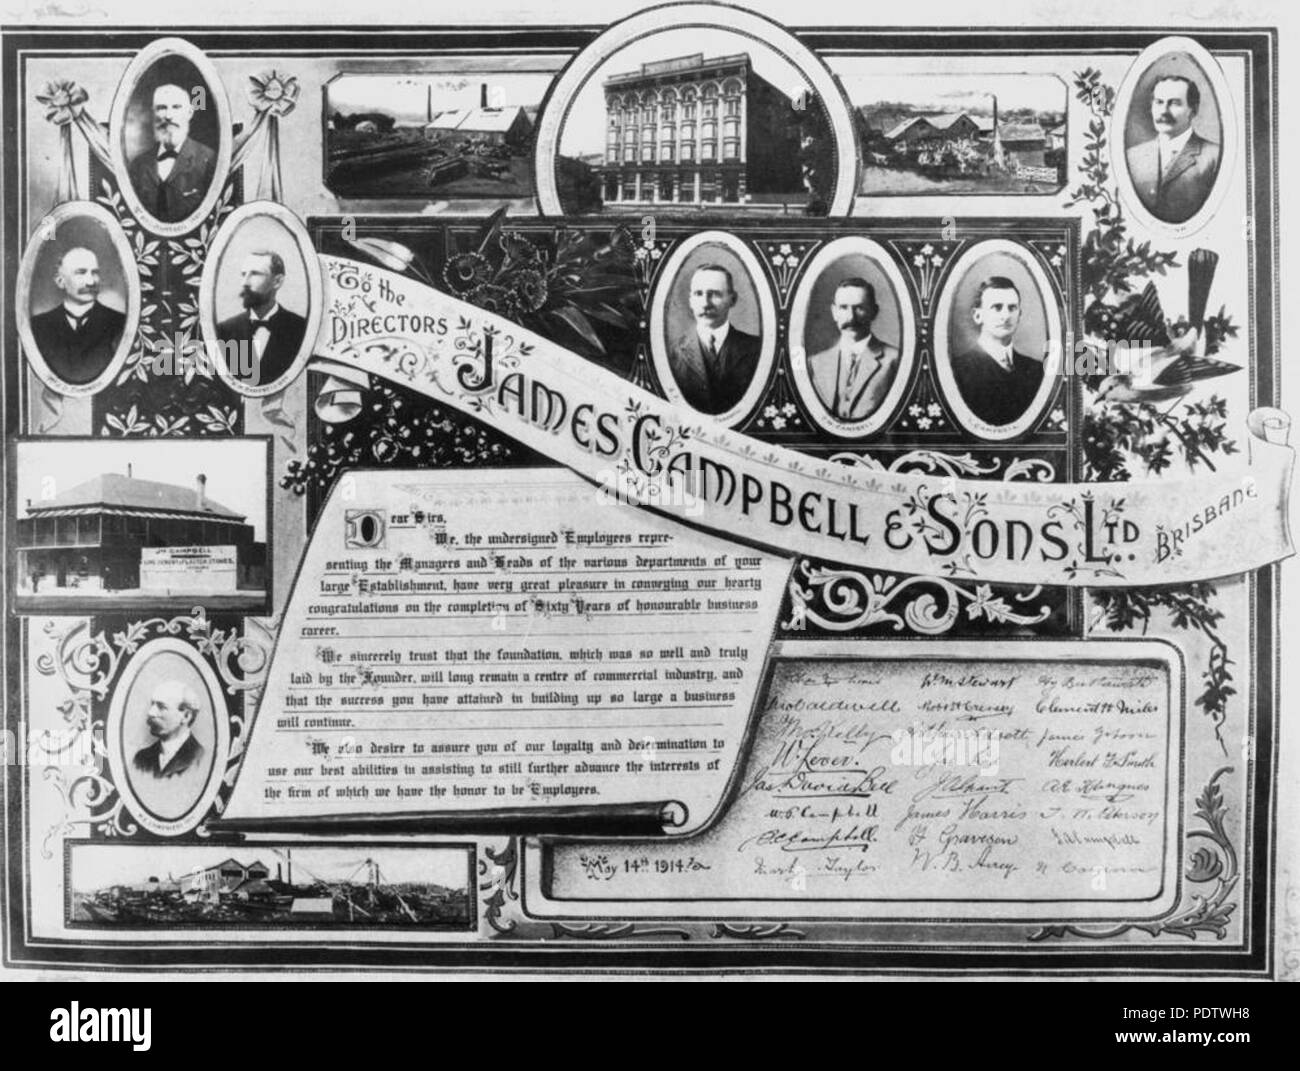 To the
DIRECTORS
JAMES CAMPBELL & SONS LTD.
BRISBANE
J.W. CAMPBELL
CAMPBELL
JAS CAMPBELL
LIME, CEMENT & PLASTER STORES.
Dear Sirs,
We, the undersigned Employees repre-
senting the Managers and Heads of the various departments of your
large Establishment, have very great pleasure in conveying our hearty
congratulations on the completion of Sixty Years of honourable business
career.
We sincerely trust that the foundation, which was so well and truly
laid by the Founder, will long remain a centre of commercial industry, and
that the success you have attained in building up so large a business
will continue.
We also desire to assure you of our loyalty and determination to
use our best abilities in assisting to still further advance the interests of
the firm of which we have the honor to be Employees.
Wm Stewart
Clement H Miles
W. Lever.
Herbert G. Smith
Jas David Bell
W. S. Campbell
James Harris
T. W. Peterson
C C Campbell.
H Graveson
Mark Taylor
May 14th 1914.
a
alamy
alamy stock photo
PDTWH8
www.alamy.com